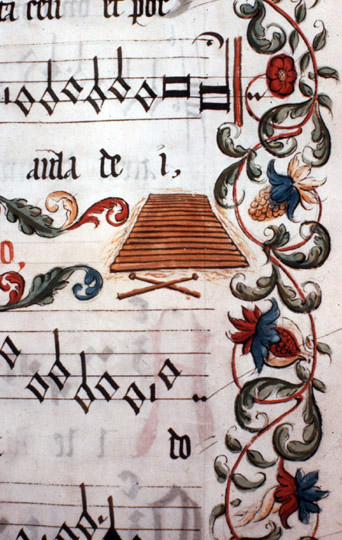 ta celi et por
aula de i,
o,
do